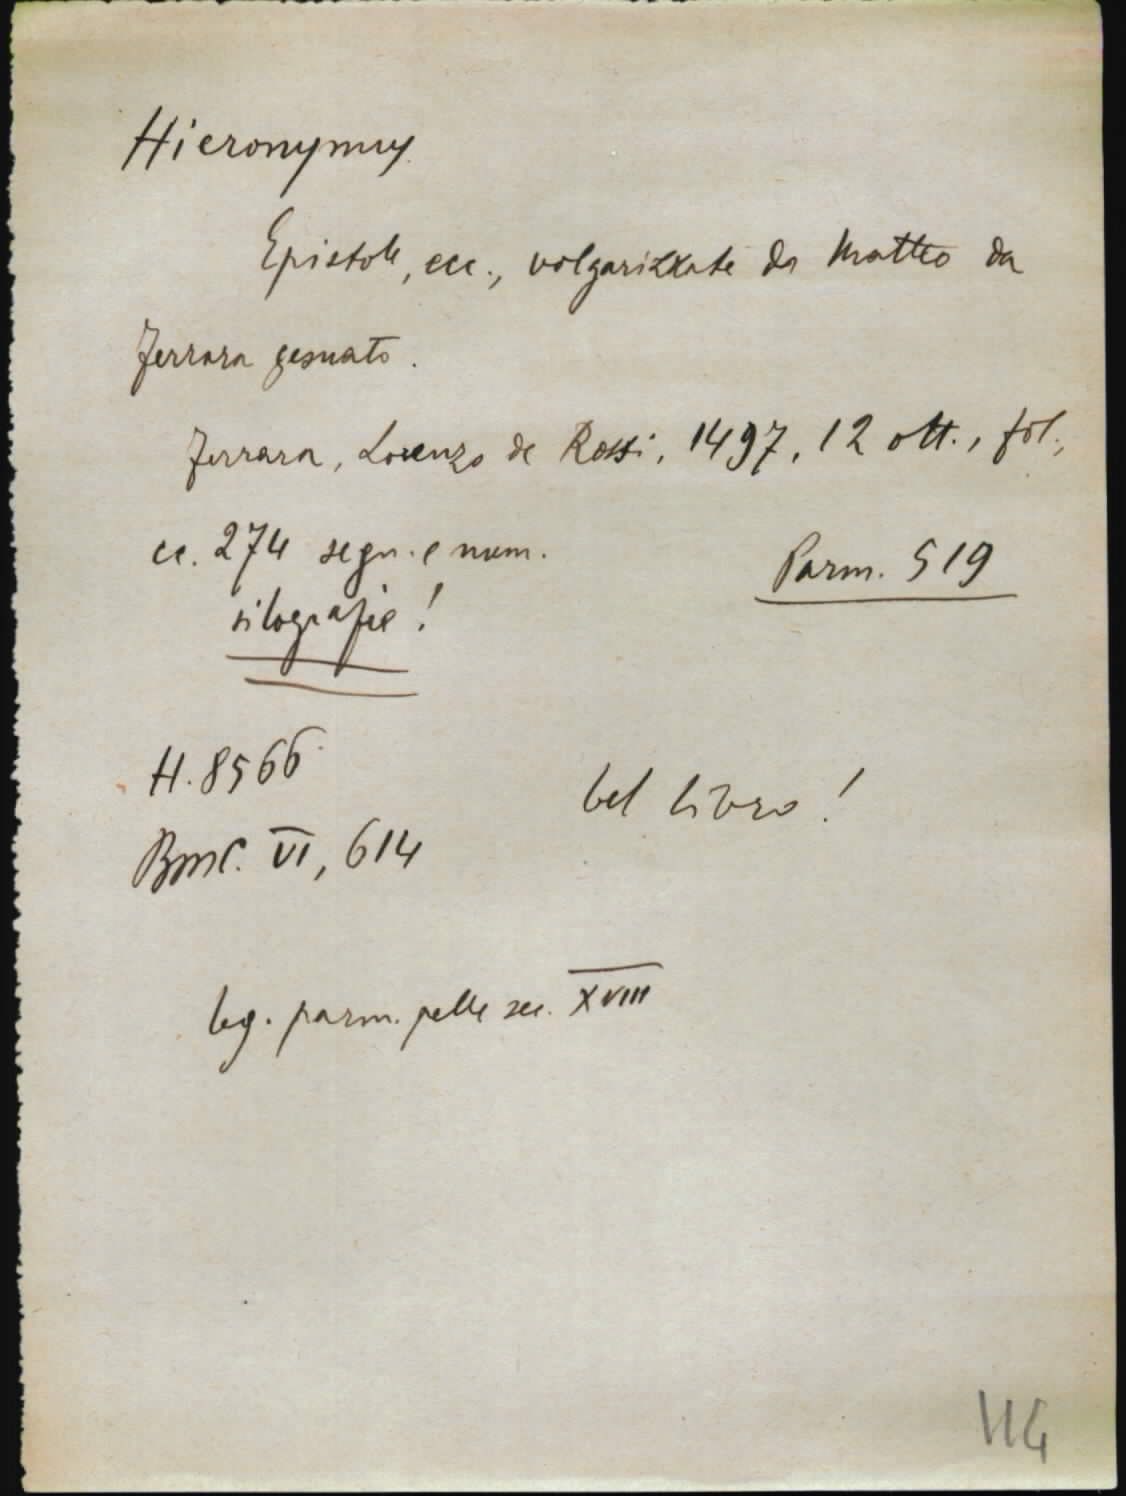 Hieronymus
Epistole, ecc., volgarizzate da Matteo da
Ferrara gesuato.
Ferrara, Lorenzo de Rossi, 1497, 12 ott., fol.,
cc. 274 segn. e num.
Parm. 519
silografie!
H. 8566
bel libro!
BMC. VI, 614
leg. parm. pelle sec. XVIII
114